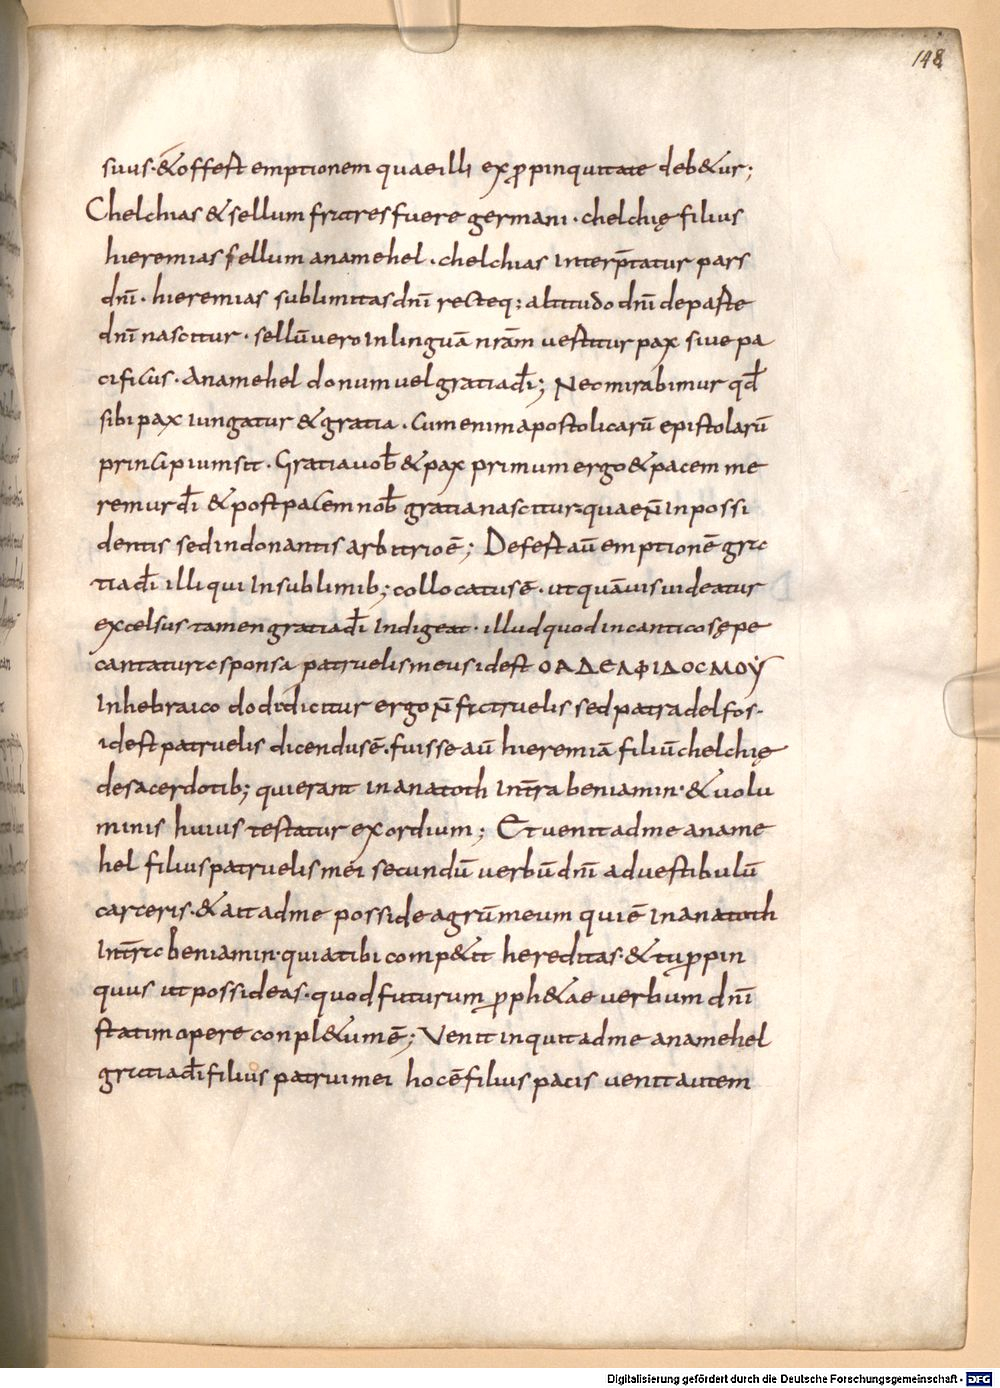 148
suus · & offest emptionem quae illi ex ꝓpinquitate deb&ur;
Chelchias & sellum fratres fuere germani · chelchię filius
hieremias sellum anamehel · chelchias interp̄tatur pars
dn̄i · hieremias sublimitas dn̄i recteq; altitudo dn̄i de paste
dn̄i nascitur · sellū vero in linguā nr̄am vestitur pax sive pa
cificus · Anamehel donum vel gratia dī; Nec mirabimur qđ
sibi pax iungatur & gratia · Cum enim apostolicarū epistolarū
principium sit · Gratia vob̄ & pax primum ergo & pacem me
remur dī & post pacem nob̄ gratia nascitur quae n̄ in possi
dentis sed in donantis arbitrio ē; Defest aū emptionē gra
tia dī illi qui in sublimib; collocatus ē · ut quāvis videatur
excelsus tamen gratia dī indigeat · illud quod in cantico sępe
cantatur a sponsa patruelis meus id est Ο ΑΔΕΛΦΙΔΟС ΜΟΥ
In hebraico dodi dicitur ergo n̄ fratruelis sed patradelfos ·
id est patruelis dicendus ē · fuisse aū hieremiā filiū chelchię
de sacerdotib; qui erant in anatoth in tr̄a beniamin · & volu
minis huius testatur exordium; Et venit ad me aname
hel filius patruelis mei secundū verbū dn̄i ad vestibulū
carceris · & ait ad me posside agrū meum qui ē in anatoth
In tr̄a beniamin · quia tibi comp&it hereditas · & tu ꝓpin
quus ut possideas · quod futurum ꝓph&ae verbum dn̄i
statim opere conpl&um ē; Venit inquit ad me anamehel
gratia dī filius patrui mei hoc ē filius pacis venit autem
Digitalisierung gefördert durch die Deutsche Forschungsgemeinschaft - DFG